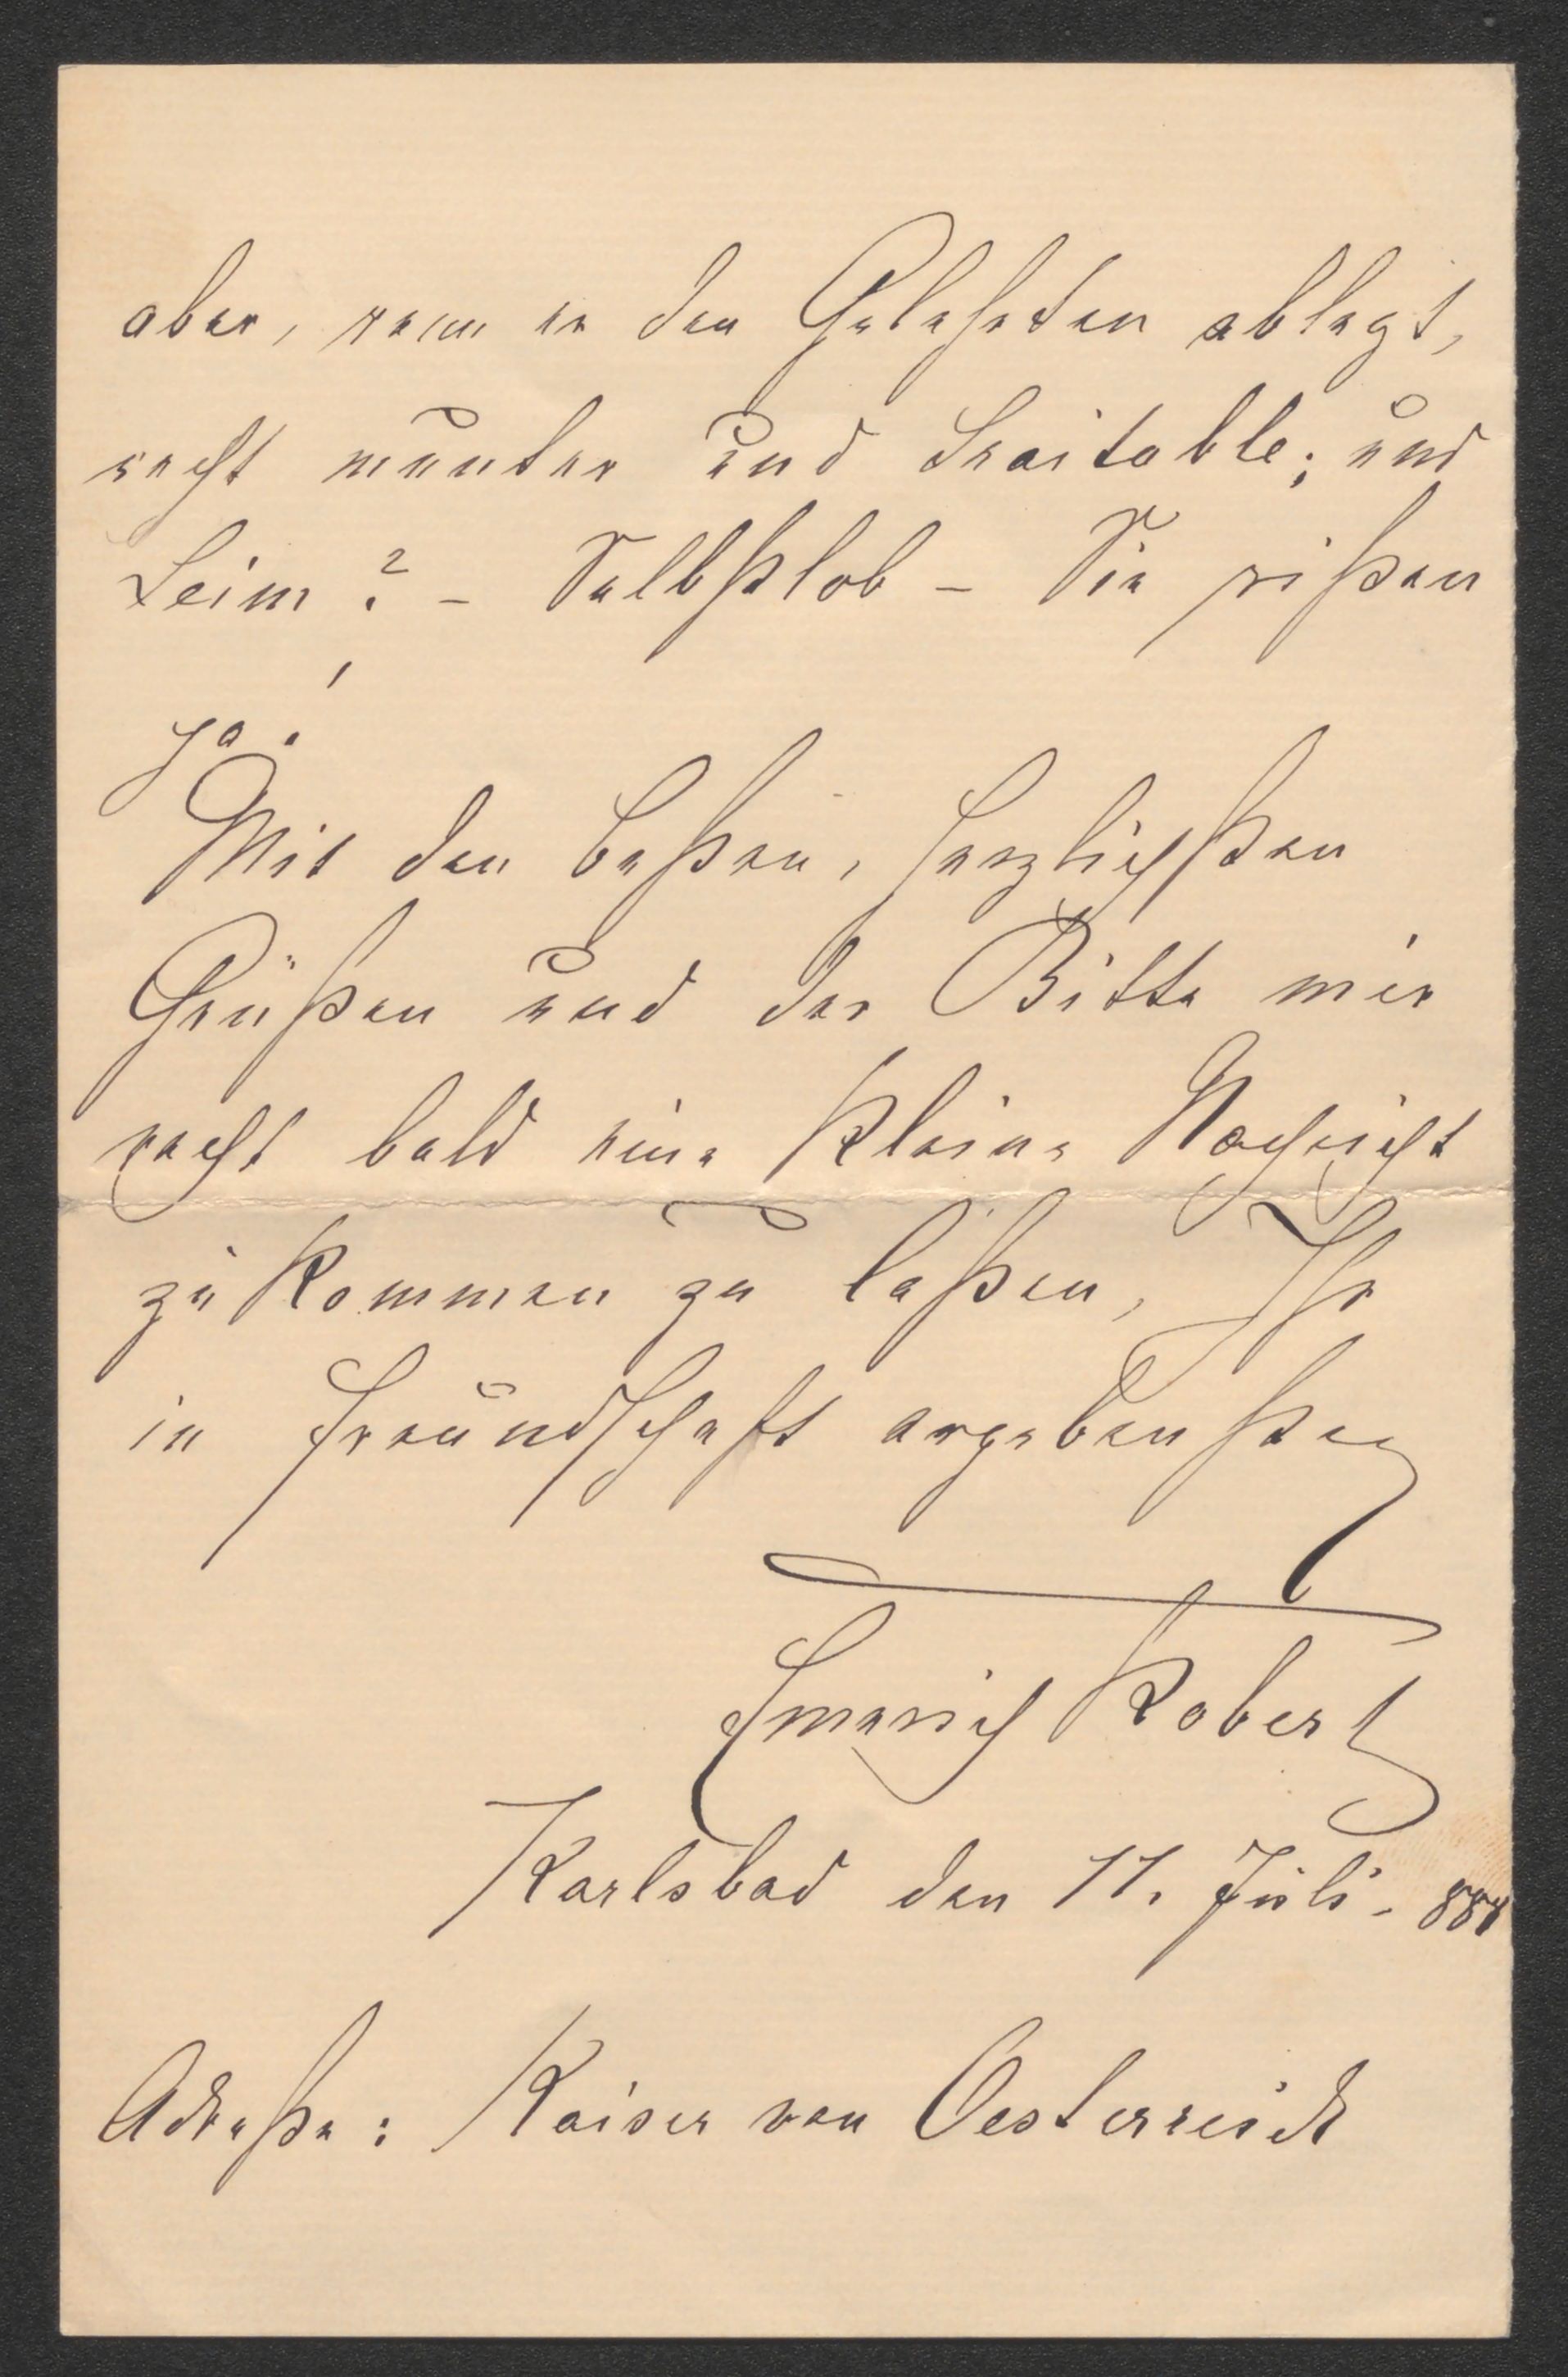 aber, wenn er den Gelehrten ablegt,
recht munter und traitable; und
Leim? – Selbstlob – Sie wißen
ja!
Mit den besten, herzlichsten
Grüßen und der Bitte mir
recht bald eine kleine Nachricht
zukommen zu laßen, Ihr
in Freundschaft ergebenster
Emerich Robert
Karlsbad den 11. Juli. 888
Adreße: Kaiser von Oesterreich